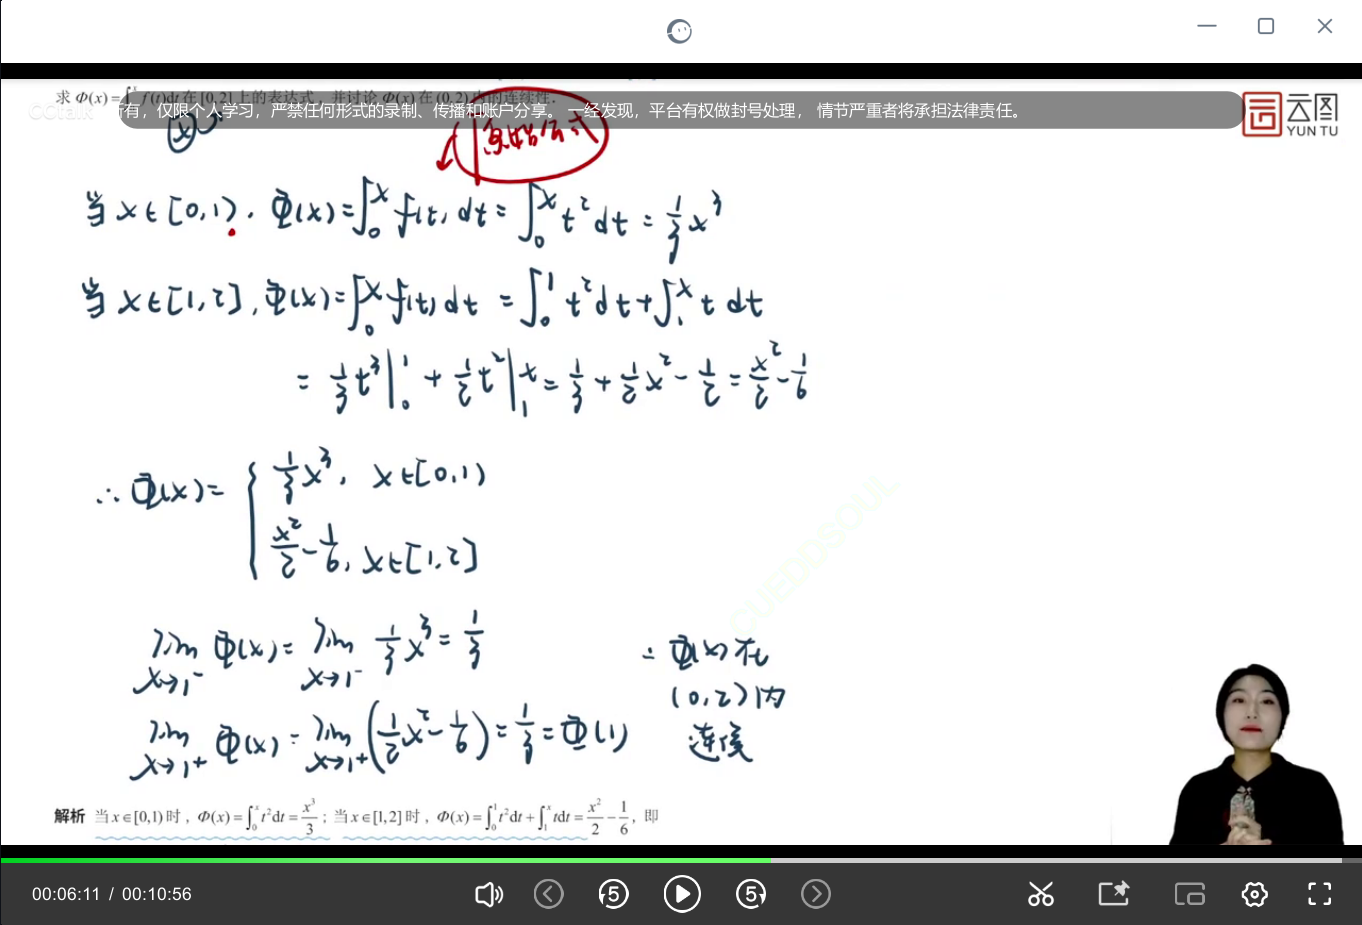 求 Φ(x)=∫₀ˣ f(t)dt 在 [0,2] 上的表达式，并讨论 Φ(x) 在 (0,2) 内的连续性.
有，仅限个人学习，严禁任何形式的录制、传播和账户分享。 一经发现，平台有权做封号处理， 情节严重者将承担法律责任。
CCtalk
云图
YUN TU
原始公式
当 x∈[0,1). Φ(x)=∫₀ˣ f(t) dt = ∫₀ˣ t² dt = 1/3 x³
当 x∈[1,2], Φ(x)=∫₀ˣ f(t) dt = ∫₀¹ t² dt + ∫₁ˣ t dt
= 1/3 t³|₀¹ + 1/2 t²|₁ˣ = 1/3 + 1/2 x² - 1/2 = x²/2 - 1/6
∴ Φ(x)= { 1/3 x³, x∈[0,1)
x²/2 - 1/6, x∈[1,2]
CUEDDSOUL
lim x→1⁻ Φ(x) = lim x→1⁻ 1/3 x³ = 1/3
lim x→1⁺ Φ(x) = lim x→1⁺ (1/2 x² - 1/6) = 1/3 = Φ(1)
∴ Φ(x) 在
(0,2) 内
连续
解析 当 x∈[0,1) 时，Φ(x)=∫₀ˣ t²dt=x³/3；当 x∈[1,2] 时，Φ(x)=∫₀¹ t²dt+∫₁ˣ tdt=x²/2-1/6，即
00:06:11 / 00:10:56
5
5